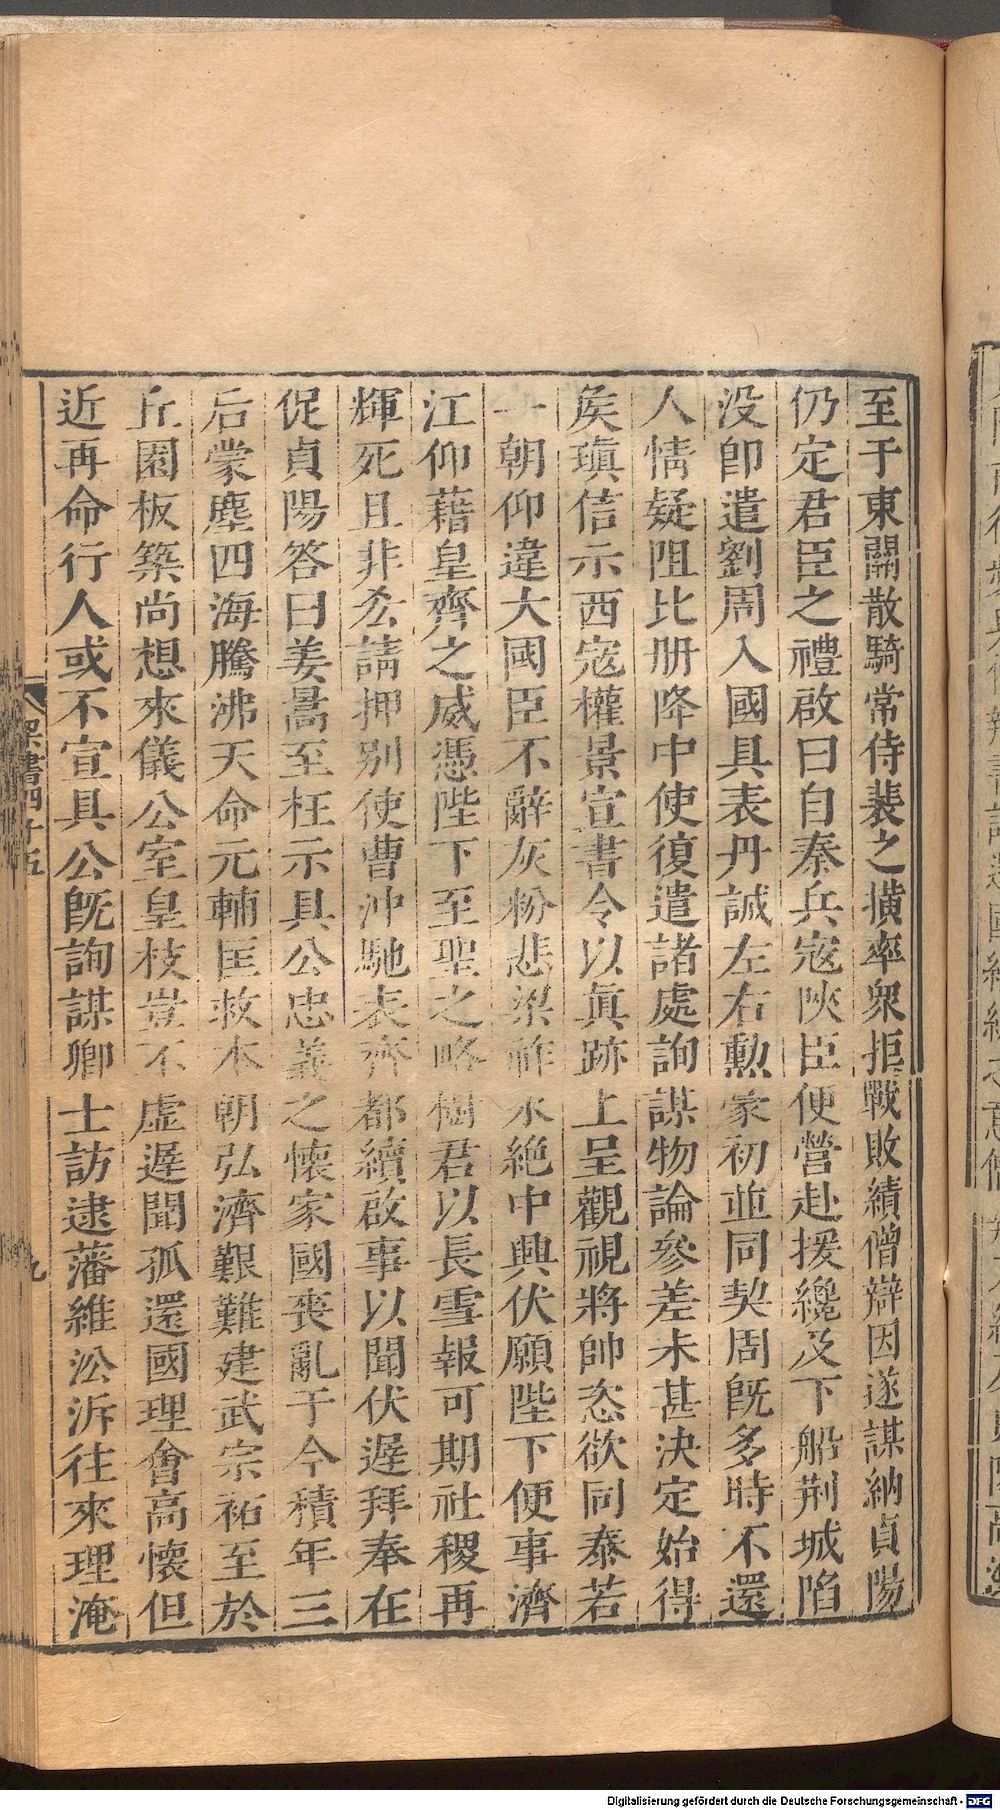 至于東關散騎常侍裴之橫率衆拒戰敗績僧辯因遂謀納貞陽
仍定君臣之禮啟曰自秦兵寇陝臣便營赴援纔及下船荆城陷
没卽遣劉周入國具表丹誠左右勳豪初並同契周旣多時不還
人情疑阻比册降中使復遣諸處詢謀物論參差未甚決定始得
矦瑱信示西寇權景宣書令以眞跡上呈觀視將帥恣欲同泰若
一朝仰違大國臣不辭灰粉悲梁祚永絶中興伏願陛下便事濟
江仰藉皇齊之威憑陛下至聖之略樹君以長雪報可期社稷再
輝死且非吝請押别使曹沖馳表齊都續啟事以聞伏遲拜奉在
促貞陽答曰姜暠至枉示具公忠義之懷家國喪亂于今積年三
后蒙塵四海騰沸天命元輔匡救本朝弘濟艱難建武宗祏至於
丘園板築尚想來儀公室皇枝豈不虛遲聞孤還國理會高懷但
近再命行人或不宣具公旣詢謀卿士訪逮藩維沿泝往來理淹
梁書四十五
九
Digitalisierung gefördert durch die Deutsche Forschungsgemeinschaft - DFG